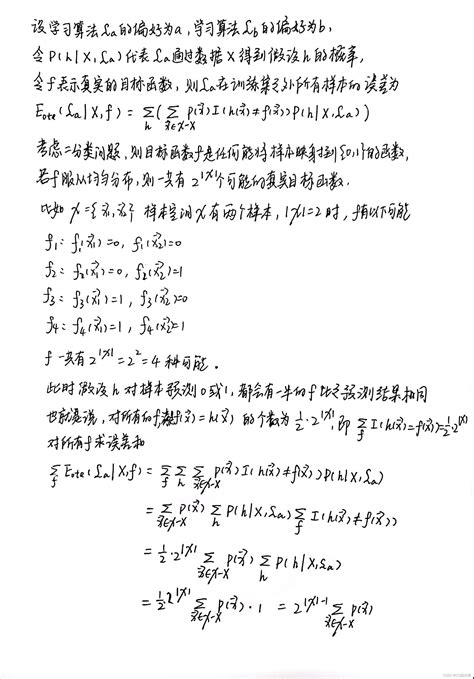 设学习算法 𝔏a的偏好为a,学习算法 𝔏b的偏好为b,
令P(h|X,𝔏a)代表𝔏a通过数据X得到假设h的概率,
令f表示真实的目标函数,则𝔏a在训练集之外所有样本的误差为
Eote(𝔏a|X,f) = Σh(Σx⃗∈𝒳-X P(x⃗)I(h(x⃗)≠f(x⃗))P(h|X,𝔏a))
考虑二分类问题,则目标函数f是任何能将样本映射到{0,1}的函数,
若f服从均匀分布,则一共有2^|𝒳|个可能的真是目标函数.
比如𝒳={x⃗1,x⃗2} 样本空间𝒳有两个样本,|𝒳|=2时,f有以下可能
f1: f1(x⃗1)=0, f1(x⃗2)=0
f2: f2(x⃗1)=0, f2(x⃗2)=1
f3: f3(x⃗1)=1, f3(x⃗2)=0
f4: f4(x⃗1)=1, f4(x⃗2)=1
f一共有2^|𝒳|=2^2=4种可能.
此时假设h对样本预测0或1,都会有一半的f比之预测结果相同
也就是说,对所有的f f(x⃗)=h(x⃗) 的个数为 1/2·2^|𝒳|,即 Σf I(h(x⃗)=f(x⃗))=1/2·2^|𝒳|
对所有f求误差和
Σf Eote(𝔏a|X,f) = Σf Σh Σx⃗∈𝒳-X P(x⃗)I(h(x⃗)≠f(x⃗))P(h|X,𝔏a)
= Σx⃗∈𝒳-X P(x⃗) Σh P(h|X,𝔏a) Σf I(h(x⃗)≠f(x⃗))
= 1/2·2^|𝒳| Σx⃗∈𝒳-X P(x⃗) Σh P(h|X,𝔏a)
= 1/2 2^|𝒳| Σx⃗∈𝒳-X P(x⃗)·1 = 2^(|𝒳|-1) Σx⃗∈𝒳-X P(x⃗)